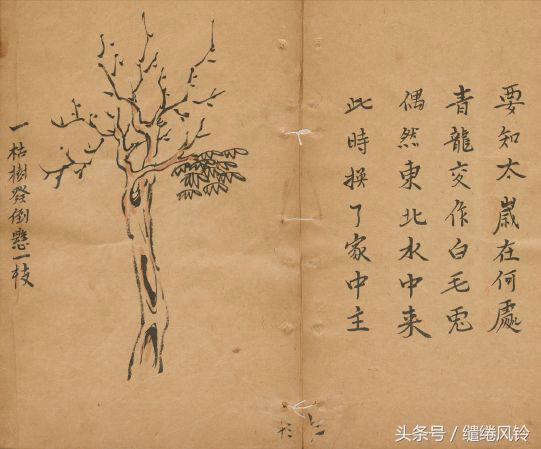 要知太歲在何處
青龍交作白毛兎
偶然東北水中来
此時换了家中主
一枯樹發倒懸一枝
头条号／缱绻风铃